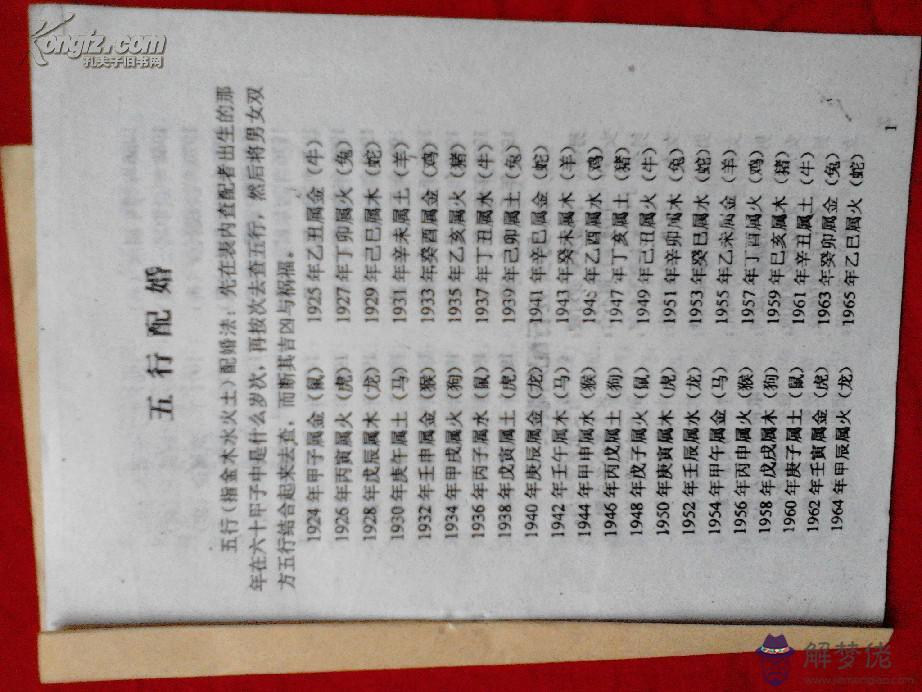 Kongfz.com
孔夫子旧书网
五行配婚
五行(指金木水火土)配婚法：先在表内查配者出生的那
年在六十甲子中是什么岁次，再按次去查五行，然后将男女双
方五行结合起来去查，而断其吉凶与祸福。
1924 年甲子属金（鼠） 1925 年乙丑属金（牛）
1926 年丙寅属火（虎） 1927 年丁卯属火（兔）
1928 年戊辰属木（龙） 1929 年己巳属木（蛇）
1930 年庚午属土（马） 1931 年辛未属土（羊）
1932 年壬申属金（猴） 1933 年癸酉属金（鸡）
1934 年甲戌属火（狗） 1935 年乙亥属火（猪）
1936 年丙子属水（鼠） 1937 年丁丑属水（牛）
1938 年戊寅属土（虎） 1939 年己卯属土（兔）
1940 年庚辰属金（龙） 1941 年辛巳属金（蛇）
1942 年壬午属木（马） 1943 年癸未属木（羊）
1944 年甲申属水（猴） 1945 年乙酉属水（鸡）
1946 年丙戊属土（狗） 1947 年丁亥属土（猪）
1948 年戊子属火（鼠） 1949 年己丑属火（牛）
1950 年庚寅属木（虎） 1951 年辛卯属木（兔）
1952 年壬辰属水（龙） 1953 年癸巳属水（蛇）
1954 年甲午属金（马） 1955 年乙未属金（羊）
1956 年丙申属火（猴） 1957 年丁酉属火（鸡）
1958 年戊戌属木（狗） 1959 年已亥属木（猪）
1960 年庚子属土（鼠） 1961 年辛丑属土（牛）
1962 年壬寅属金（虎） 1963 年癸卯属金（兔）
1964 年甲辰属火（龙） 1965 年乙巳属火（蛇）
1
解梦佬
www.jiemenglao.com